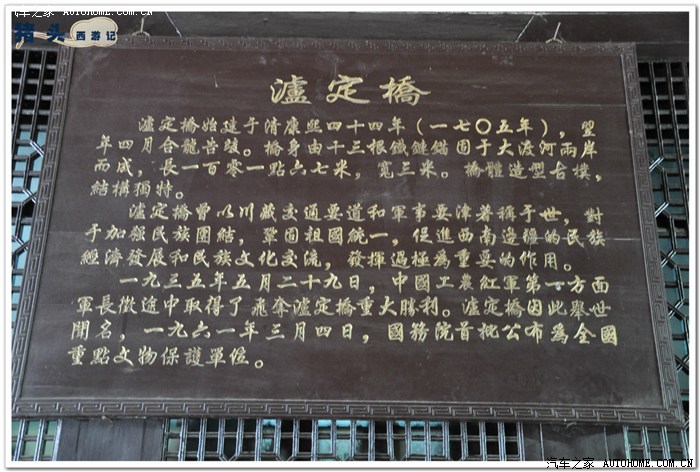 汽车之家 AUTOHOME.COM.CN
猪头西游记
瀘定橋
瀘定橋始建于清康熙四十四年（一七〇五年），翌
年四月合龍告竣。橋身由十三根鐵鏈錨固于大渡河兩岸
而成，長一百零一點六七米，寬三米。橋體造型古樸，
結構獨特。
瀘定橋曾以川藏交通要道和軍事要津著稱于世，對
于加强民族團結，鞏固祖國統一，促進西南邊疆的民族
經濟發展和民族文化交流，發揮過極為重要的作用。
一九三五年五月二十九日，中國工農紅軍第一方面
軍長徵途中取得了飛奪瀘定橋重大勝利。瀘定橋因此舉世
聞名，一九六一年三月四日，國務院首批公布為全國
重點文物保護單位。
汽车之家 AUTOHOME.COM.CN